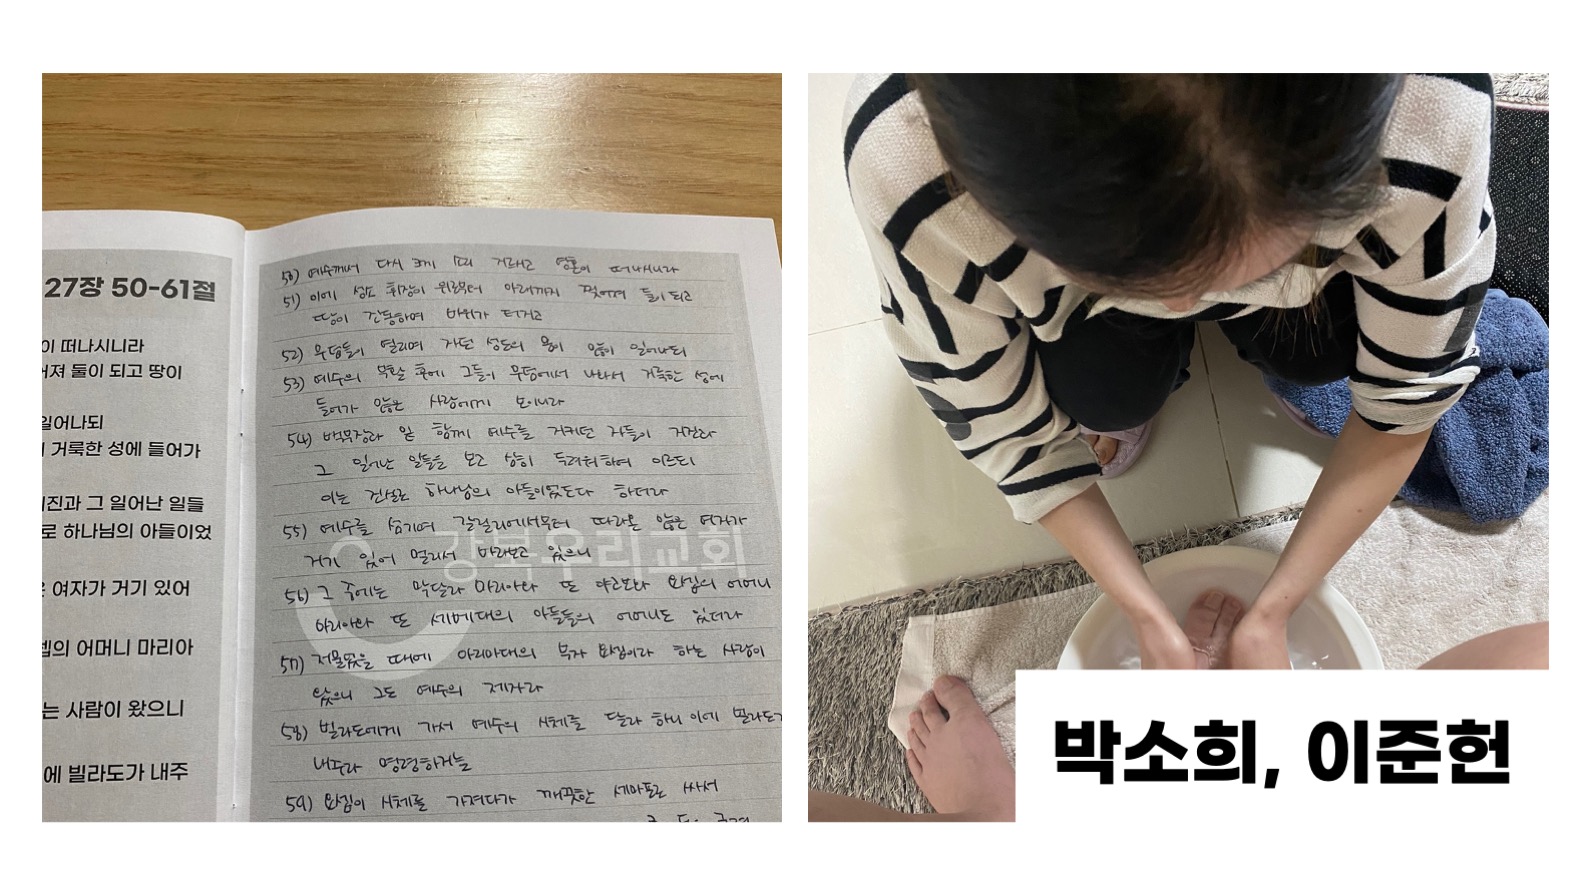 27장 50-61절
이 떠나시니라
져 둘이 되고 땅이
일어나되
거룩한 성에 들어가
진과 그 일어난 일들
로 하나님의 아들이었
여자가 거기 있어
의 어머니 마리아
는 사람이 왔으니
에 빌라도가 내주
50) 예수께서 다시 크게 소리 지르시고 영혼이 떠나시니라
51) 이에 성소 휘장이 위로부터 아래까지 찢어져 둘이 되고
땅이 진동하며 바위가 터지고
52) 무덤들이 열리며 자던 성도의 몸이 많이 일어나되
53) 예수의 부활 후에 그들이 무덤에서 나와서 거룩한 성에
들어가 많은 사람에게 보이니라
54) 백부장과 및 함께 예수를 지키던 자들이 지진과
그 일어난 일들을 보고 심히 두려워하여 이르되
이는 진실로 하나님의 아들이었도다 하더라
55) 예수를 섬기며 갈릴리에서부터 따라온 많은 여자가
거기 있어 멀리서 바라보고 있으니
강북우리교회
56) 그 중에는 막달라 마리아와 또 야고보와 요셉의 어머니
마리아와 또 세베대의 아들들의 어머니도 있더라
57) 저물었을 때에 아리마대의 부자 요셉이라 하는 사람이
왔으니 그도 예수의 제자라
58) 빌라도에게 가서 예수의 시체를 달라 하니 이에 빌라도가
내주라 명령하거늘
59) 요셉이 시체를 가져다가 깨끗한 세마포로 싸서
박소희, 이준헌